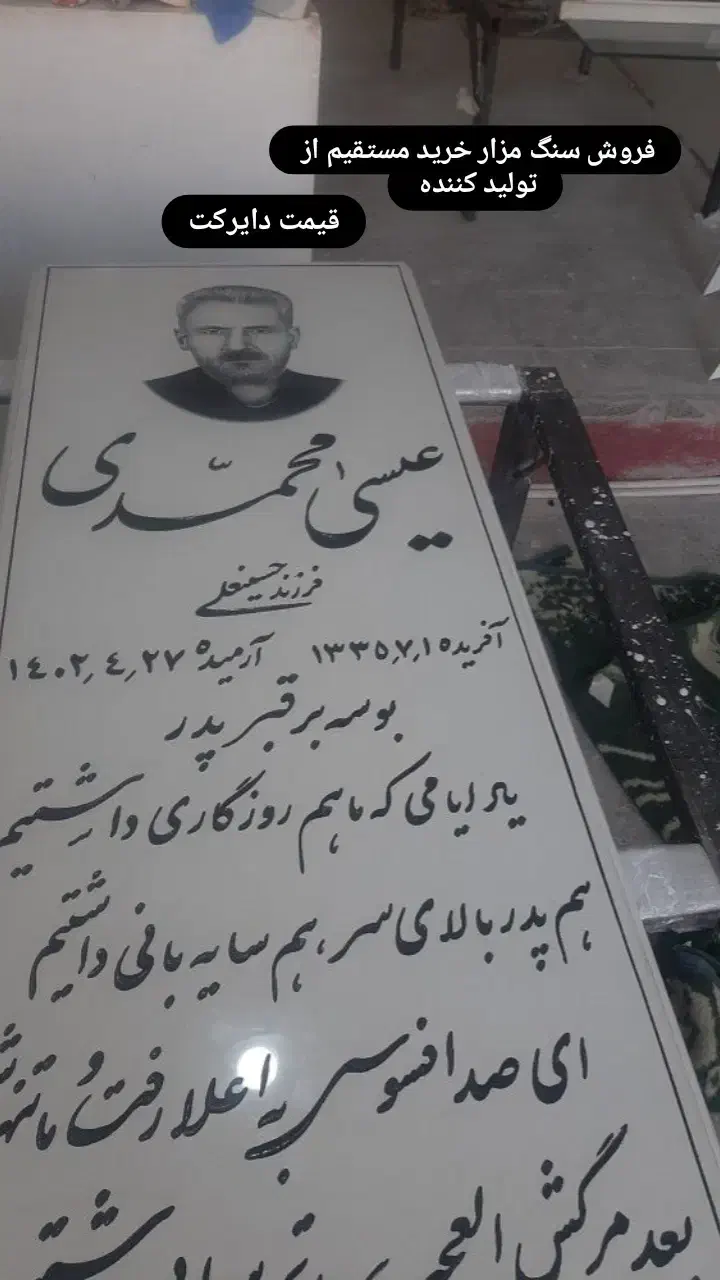 فروش سنگ مزار خرید مستقیم از
تولید کننده
قیمت دایرکت
عیسیٰ محمّدی
فرزند حسینعلی
آفریده ۱۳۳۵,۷,۱ آرمیده ۱٤۰۲,٤,۲۷
بوسه بر قبر پدر
یاد ایامی که ما هم روزگاری داشتیم
هم پدر بالای سر، هم سایه بانی داشتیم
ای صد افسوس به اعلا رفت و ما
بعد مرگش العجب